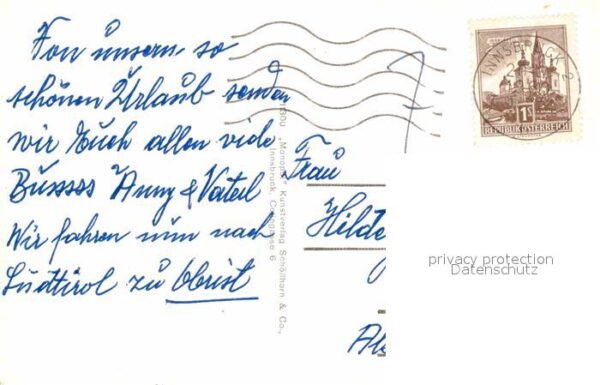 Von unsern, so
schönen Urlaub senden
wir Euch allen viele
Bussss Anny & Vateil
Wir fahren nun nach
Südtirol zu Obrist
"Monopol" Kunstverlag Schöllhorn & Co.,
Innsbruck,
Frau
Hilde
INNSBRUCK
1S
REPUBLIK ÖSTERREICH
privacy protection
Datenschutz